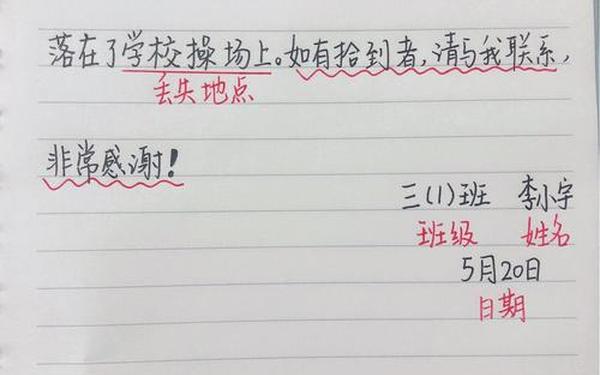 落在了学校操场上。如有拾到者,请与我联系,
丢失地点
非常感谢!
三(1)班 李小宇
班级 姓名
5月20日
日期